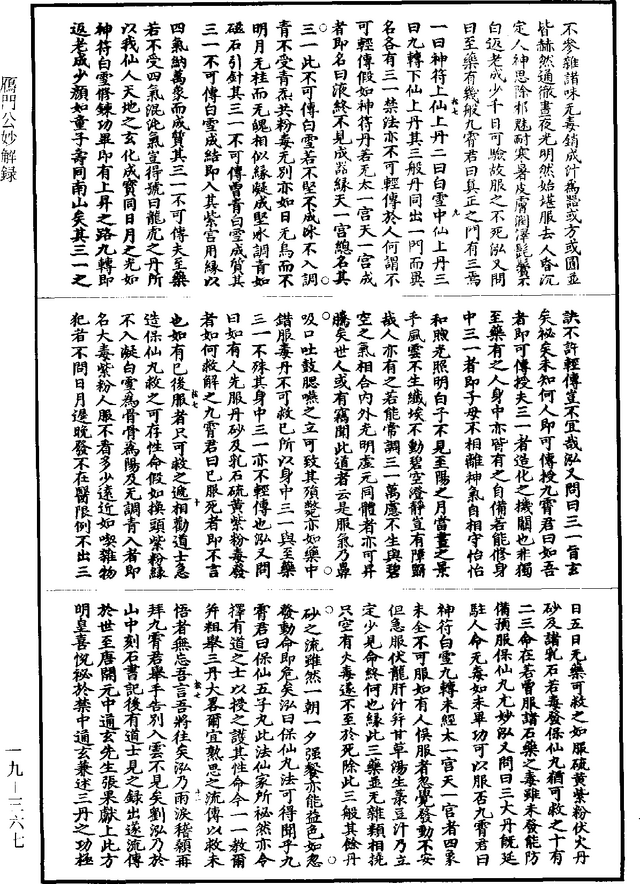 不參雜諸味无毒銷成汁爲器或方或圓並
皆赫然通徹晝夜光明然始堪服去人昏沉
定人神思除邪魅耐寒暑皮膚潤澤髭鬢不
白返老成少千日可驗故服之不死泓又問
曰至藥有幾般九霄君曰真正之門有三焉
一曰神符上仙上丹二曰白雪中仙上丹三
曰九轉下仙上丹其三般丹同出一門而異
名各有三一禁法亦不可輕傳於人何謂不
可輕傳假如神符丹若无太一宮天一宮成
者即名曰液終不見成
緣天一宮總名其
三一此不可傳白雪若不堅不成冰不入調
青不受青㷋共粉毒无別亦如日无烏而不
明月无桂而无魄相似緣凝成堅冰調青如
磁石引針其三一不可傳曾青白雪成質其
三一不可傳白雪成結即入其紫宮用緣以
四氣納萬彙而成質其三一不可傳夫至藥
若不受四氣混沌氣豈得號曰龍虎之丹所
以我仙人天地之玄化成寶同日月之光如
神符白雪修鍊功畢即有上昇之路九轉即
返老成少顏如童子壽同南山矣其三一之
訣不許輕傳豈不宜哉泓又問曰三一旨玄
矣祕矣未知何人即可傳授九霄君曰如吾
者即可傳授夫三一者造化之機關也非獨
至藥有之人身中亦皆有之自備若能修身
中三一者即子母不相離神氣自相守怡怡
和煦光照明白子不見至陽之月當晝之景
乎風雲不生纖埃不動碧空澄靜豈有障翳
哉人亦有之若能常調三一萬慮不生與碧
空之氣相合內外光明虛无同體者亦可昇
騰矣世人或有竊聞此道者云是服氣乃鼻
吸口吐鼓腮嚥之立可致其殞斃亦如藥中
錯服毒丹不可救已所以身中三一與至藥
三一不殊其身中三一亦不輕傳也泓又問
曰如有人先服丹砂及乳石硫黃紫粉毒發
者如何救解之九霄君曰已服死者即不言
也如有已後服者只可救之遞相勸道士急
造保仙九救之可存性命假如換頭紫粉緣
不入凝白雪爲骨骨爲陽及无調青入者即
名大毒紫粉人服不看多少遠近如喫雜物
犯若不問日月遲晚發不在醫限例不出三
日五日无藥可救之如服硫黃紫粉伏火丹
砂及諸乳石若毒發保仙九猶可救之十有
二三命在若曾服諸石藥之毒雖未發能防
備預服保仙九尤妙泓又問曰三大丹既延
駐人命无毒如未畢功可以服否九霄君曰
神符白雪九轉未經太一宮天一宮者四象
未全不可服如有人悮服者忽覺發動不安
但急服伏龍肝汁幷甘草湯生菉豆汁乃立
定少見命終何也緣此三藥並无雜類相撓
只空有火毒遂不至於死除此三般其餘丹
砂之流雖然一朝一夕强餐亦能益色如忽
發動命即危矣泓曰保仙九法可得聞乎九
霄君曰保仙五子丸此法仙家所祕然亦令
擇有道之士以授之護其性命令一一教爾
幷粗舉三丹大畧爾宜熟思之流傳以救未
悟者無忘吾言吾將往矣泓乃雨淚稽顙再
拜九霄君舉手告別入雲不見矣劉泓乃於
山中刻石書記後有道士見之録出遂流傳
於世至唐開元中通玄先生張果獻上此方
明皇喜悅祕於禁中通玄兼述三丹之功極
鴈門公妙解録
一九－三六七